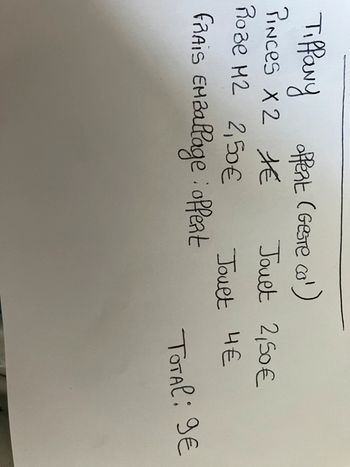 Tiffany
offert (Geste co')
Pinces X 2 1€ Jouet 2,50€
Robe M2 2,50€ Jouet 4€
Frais emballage : offert
Total : 9€